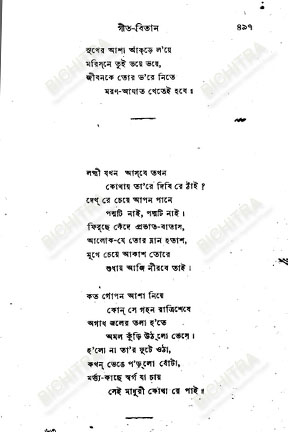 গীত-বিতান ৪৯৭
সুখের আশা আঁক্‌ড়ে ল'য়ে
মরিস্‌নে তুই ভয়ে ভয়ে,
জীবনকে তোর ভ'রে নিতে
মরণ-আঘাত খেতেই হবে॥
লক্ষ্মী যখন আস্‌বে তখন
কোথায় তা'রে দিবি রে ঠাঁই ?
দেখ্‌ রে চেয়ে আপন পানে
পদ্মটি নাই, পদ্মটি নাই।
ফিরছে কেঁদে প্রভাত-বাতাস,
আলোক-যে তোর ম্লান হতাশ,
মুখে চেয়ে আকাশ তোরে
শুধায় আজি নীরবে তাই।
কত গোপন আশা নিয়ে
কোন্‌ সে গহন রাত্রিশেষে
অগাধ জলের তলা হ'তে
অমল কুঁড়ি উঠ্‌লো ভেসে।
হ'লো না তা'র ফুটে ওঠা,
কখন্‌ ভেঙে প'ড়্‌লো বোঁটা,
মর্ত্ত্য-কাছে স্বর্গ যা চায়
সেই মাধুরী কোথা রে পাই।
BICHITRA